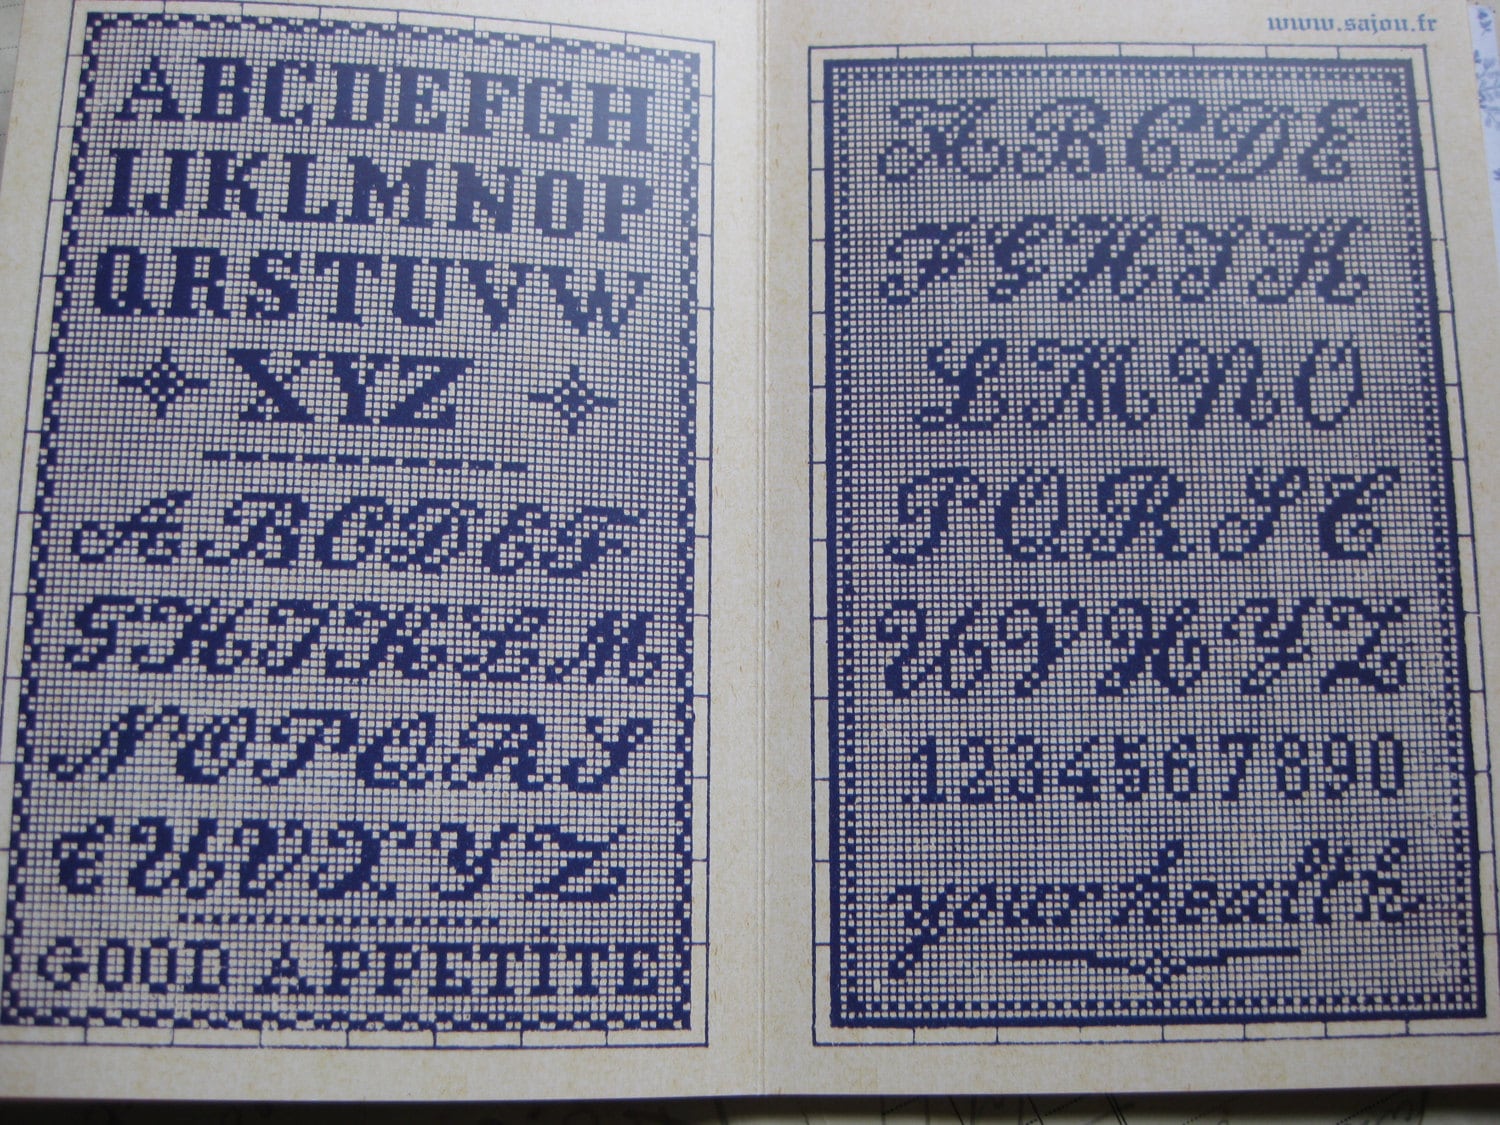 ABCDEFGH
IJKLMNOP
QRSTUVW
XYZ
ABCDEF
GHIJKLM
NOPQRS
TUVXYZ
GOOD APPETITE
www.sajou.fr
ABCDE
FGHJK
LMNO
PQRST
UVXYZ
1234567890
your health